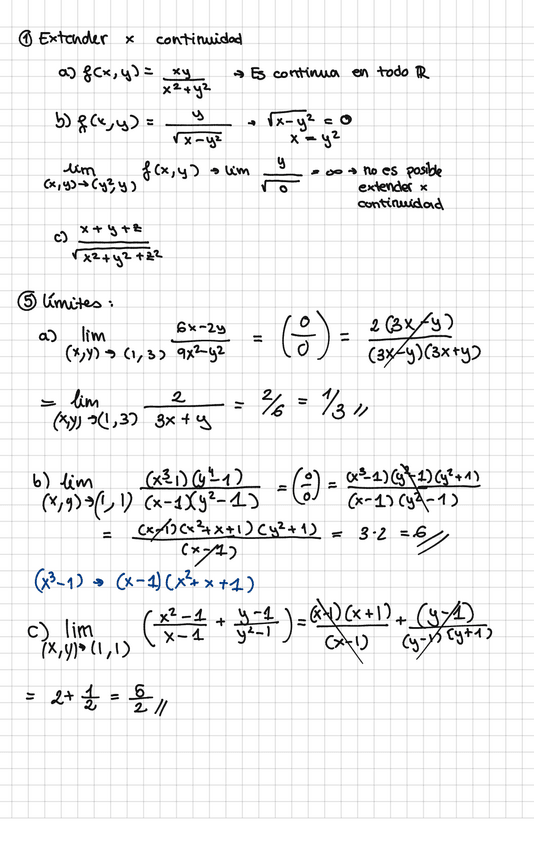 ① Extender x continuidad
a) f(x,y) = xy / x²+y² → Es continua en todo ℝ
b) f(x,y) = y / √x-y² → √x-y² = 0
x = y²
lim (x,y)→(y²,y) f(x,y) → lim y / √0 = ∞ → no es posible
extender x
continuidad
c) x+y+z / √x²+y²+z²
⑤ límites:
a) lim (x,y)→(1,3) 6x-2y / 9x²-y² = (0/0) = 2(3x-y) / (3x-y)(3x+y)
= lim (x,y)→(1,3) 2 / 3x+y = 2/6 = 1/3 //
b) lim (x,y)→(1,1) (x³-1)(y⁴-1) / (x-1)(y²-1) = (0/0) = (x³-1)(y²-1)(y²+1) / (x-1)(y²-1)
= (x-1)(x²+x+1)(y²+1) / (x-1) = 3·2 = 6 //
(x³-1) → (x-1)(x²+x+1)
c) lim (x,y)→(1,1) (x²-1 / x-1 + y-1 / y²-1) = (x-1)(x+1) / (x-1) + (y-1) / (y-1)(y+1)
= 2+ 1/2 = 5/2 //